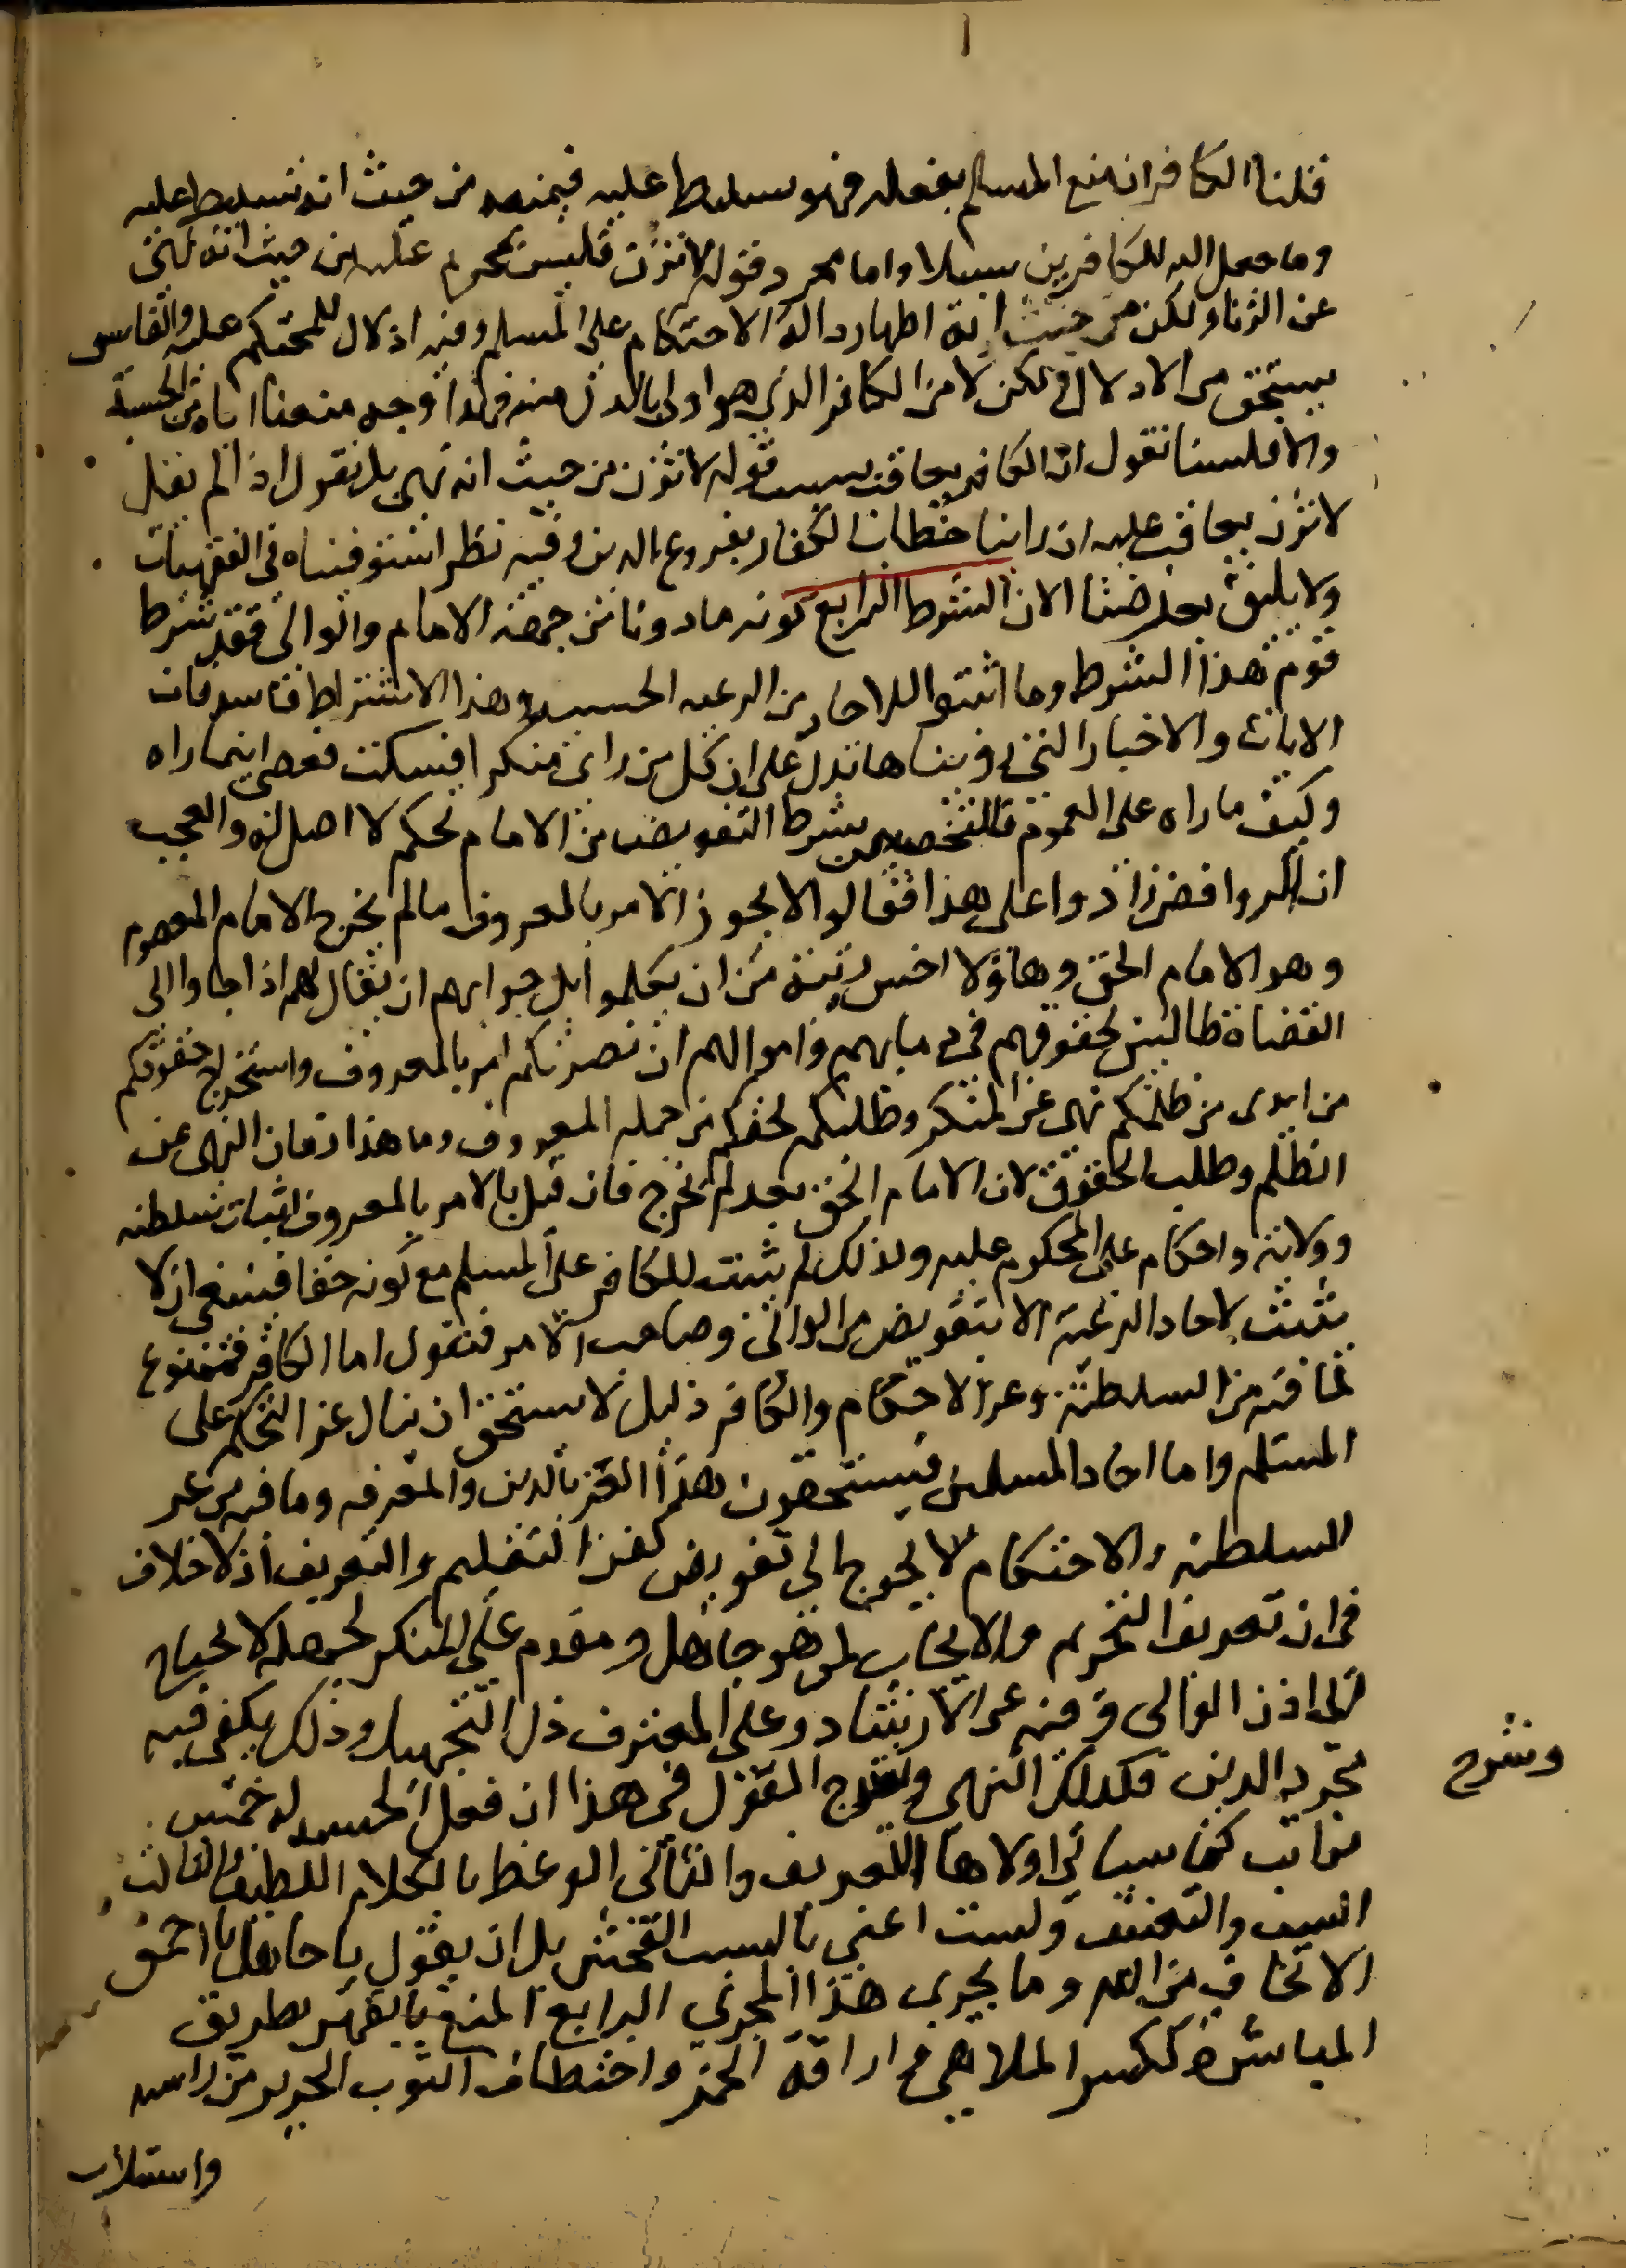 قلنا الكافر ان منع المسلم بفعله فهو سلط عليه فيمنعه من حيث انه تسليط عليه
وما جعل الله للكافرين سبيلا واما مجرد قوله لا تزن فليس بمحرم عليه من حيث انه نهى
عن الزنا ولكن من حيث انه اظهار دالة الاحتكام على المسلم وفيه اذلال للمحتكم عليه والفاسق
يستحق الاذلال لكن لا من الكافر الذي هو اولى بالذل منه فهذا وجه منعنا اياه من الحسبة
والا فلسنا نقول ان الكافر يعاقب بسبب قوله لا تزن من حيث انه نهي بل نقول اذا لم يقل
لا تزن يعاقب عليه ان راينا خطاب الكفار بفروع الدين وفيه نظر استوفيناه في الفقهيات
ولا يليق بغرضنا الان الشرط الرابع كونه ماذونا من جهة الامام والوالي فقد شرط
قوم هذا الشرط وما اثبتوا للاحاد من الرعية الحسبة وهذا الاشتراط فاسد فان
الايات والاخبار التي رويناها تدل على ان كل من راى منكرا فسكت فعصى اينما راه
وكيف ما راه على العموم فالتخصيص بشرط التفويض من الامام تحكم لا اصل له والعجب
ان الروافض زادوا على هذا فقالوا لا يجوز الامر بالمعروف مالم يخرج الامام المعصوم
وهو الامام الحق وهاؤلا اخس رتبة من ان يكلموا بل جوابهم ان يقال لهم اذا جاوا الى
القضاة طالبين لحقوقهم في دمايهم واموالهم ان نصرتكم امر بالمعروف واستخراج حقوقكم
من ايدى من ظلمكم نهى عن المنكر وطلبكم لحقكم من جملة المعروف وما هذا زمان النهى عن
الظلم وطلب الحقوق لان الامام الحق بعد لم يخرج فان قيل بالامر بالمعروف اثبات سلطنه
وولاية واحكام على المحكوم عليه ولذلك لم يثبت للكافر على المسلم مع كونه حقا فينبغي ان لا
يثبت لاحاد الرعية الا بتفويض من الوالي وصاحب الامر فنقول اما الكافر فممنوع
لما فيه من السلطنة وعز الاحتكام والكافر ذليل لا يستحق ان ينال عز التحكم على
المسلم واما احاد المسلمين فيستحقون هذا العز بالدين والمعرفه وما فيه من عز
السلطنه والاحتكام لا يحوج الى تفويض كعز التعليم والتعريف اذ لا خلاف
في ان تعريف التحريم والايجاب لمن هو جاهل ومقدم على المنكر لجهله لا يحتاج
الى اذن الوالى وفيه عز الارشاد وعلى المعترف ذل التجهيل وذلك يكفي فيه
مجرد الدين فكذلك النهي وشرح القول في هذا ان فعل الحسبه له خمس
وشرح
مراتب كما سياتي اولاها التعريف والثاني الوعظ بالكلام اللطيف والثالث
السب والتعنيف ولست اعني بالسب الفحش بل ان يقول يا جاهل يا احمق
الا تخاف من الله وما يجري هذا المجرى الرابع المنع بالقهر بطريق
المباشرة ككسر الملاهي واراقة الخمر واختطاف الثوب الحرير من راسه
واستلاب